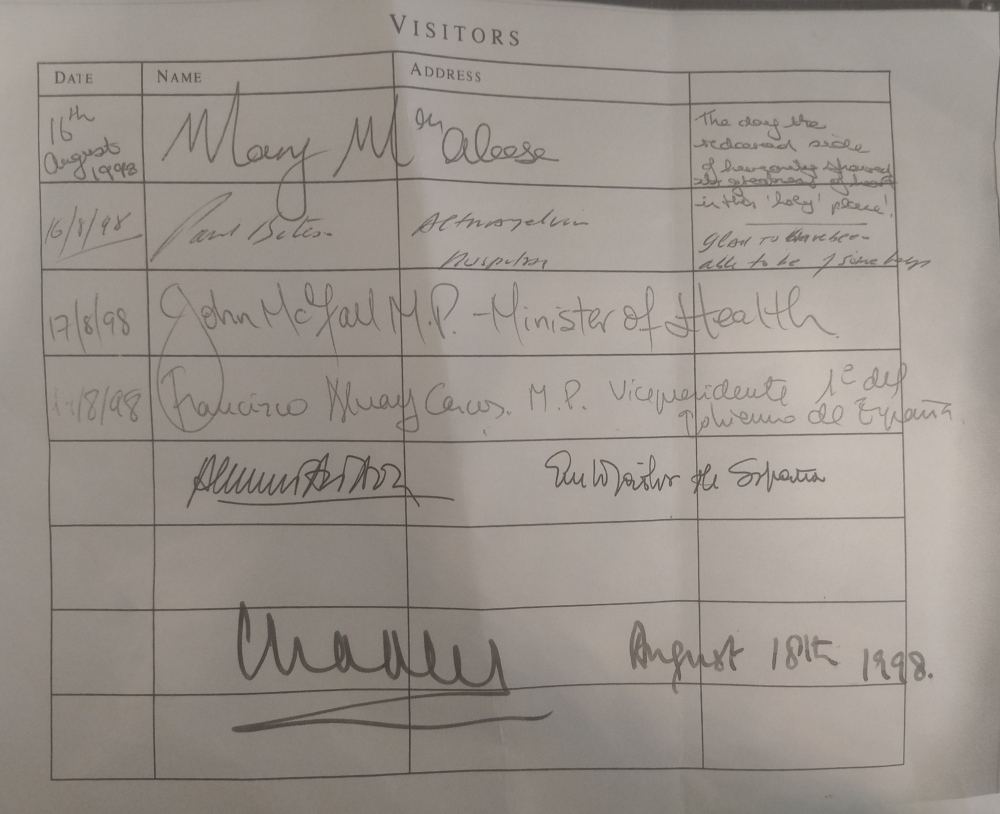 VISITORS
DATE NAME ADDRESS
16th August 1998 Mary McAleese
The day the
redeemed side
of humanity showed
its greatness of heart
in this 'holy' place!
16/8/98 Paul Altnagelvin
Hospital
Glad to have been
able to be of some help
17/8/98 John McFall M.P. - Minister of Health
/8/98 Francisco Alvarez Cascos. M.P. Vicepresidente 1º del
Gobierno de España.
de España
Charles August 18th 1998.